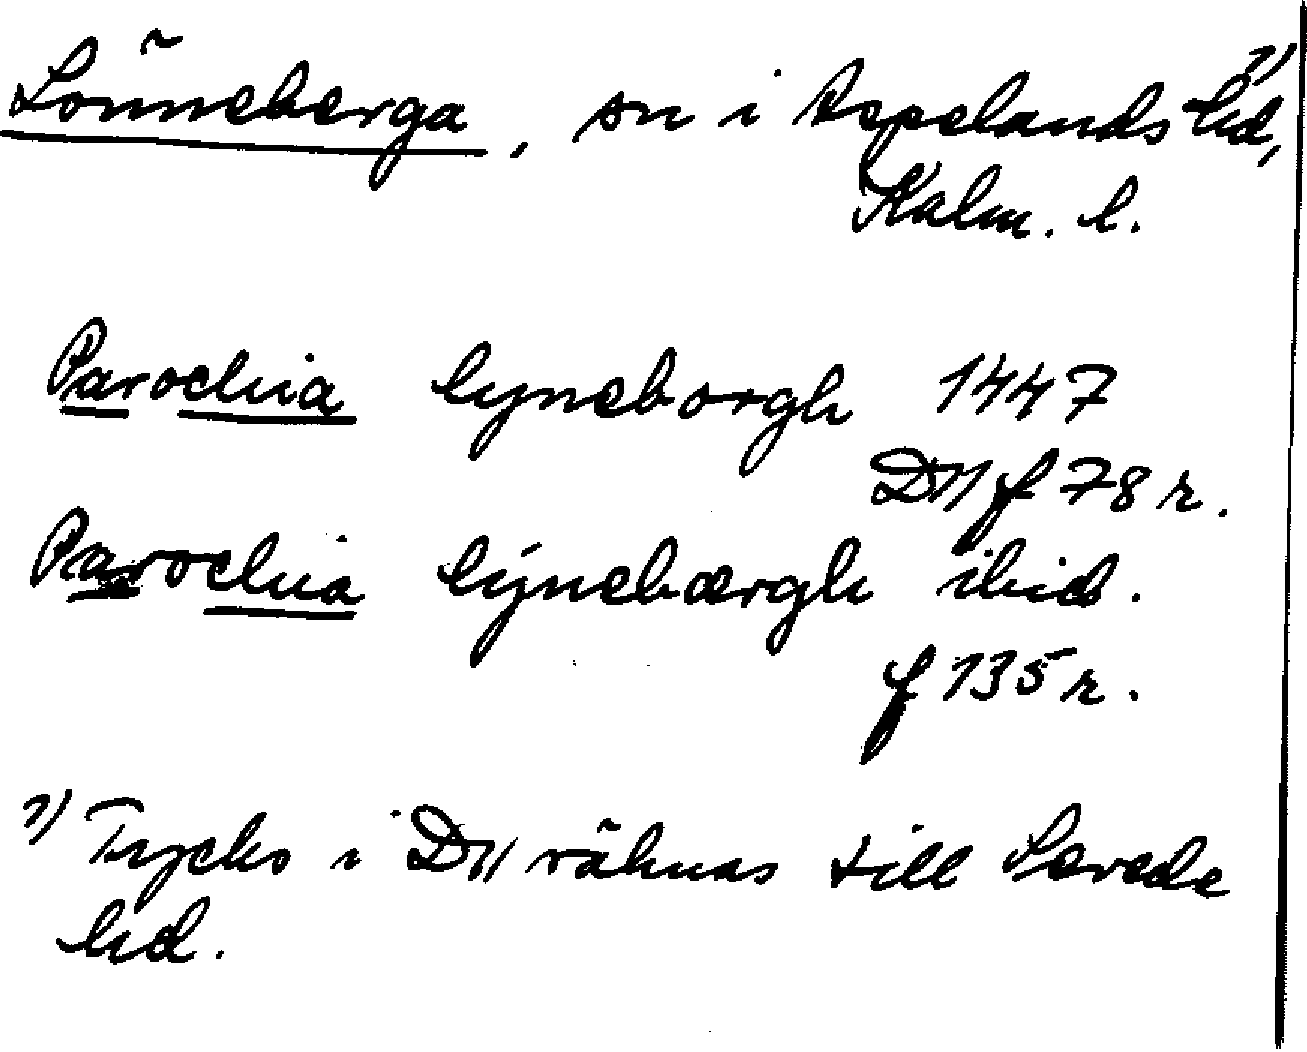 Lönneberga, sn i Aspelands hd, 1)
Kalm. l.
Parochia lyneborgh 1447
D11 f 78 r.
Parochia lynebærgh ibid.
f 135 r.
1) Tycks i D11 räknas till Sevede
hd.